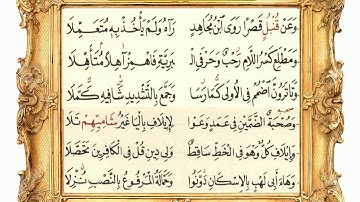 وَعَنْ قُنْبُلٍ قَصْرًا رَوَى ابْنُ مُجَاهِدٍ رَآهُ وَلَمْ يَأْخُذْ بِهِ مُتَعَمِّلَا
وَمَطْلَعِ كَسْرُ اللَّامِ رَحْبٌ وَحَرْفَيِ الْـ بَرِيَّةِ فَاهْمِزْ آهِلًا مُتَأَهِّلَا
وَتَا تَرَوُنَّ اضْمُمْ فِي الْأُولَى كَمَا رَسَا وَجَمَّعَ بِالتَّشْدِيدِ شَافِيهِ كَمَّلَا
وَصُحْبَةٌ الضَّمَّيْنِ فِي عَمَدٍ وَعَوْا لِإِيلَافِ بِالْيَا غَيْرُ شَامِيِّهِمْ تَلَا
وَإِيلَافِ كُلٌّ وَهْوَ فِي الْخَطِّ سَاقِطٌ وَلِي دِينِ قُلْ فِي الْكَافِرِينَ تَحَصَّلَا
وَهَاءَ أَبِي لَهْبٍ بِالْإِسْكَانِ دَوَّنُوا وَحَمَّالَةُ الْمَرْفُوعُ بِالنَّصْبِ نُزِّلَا